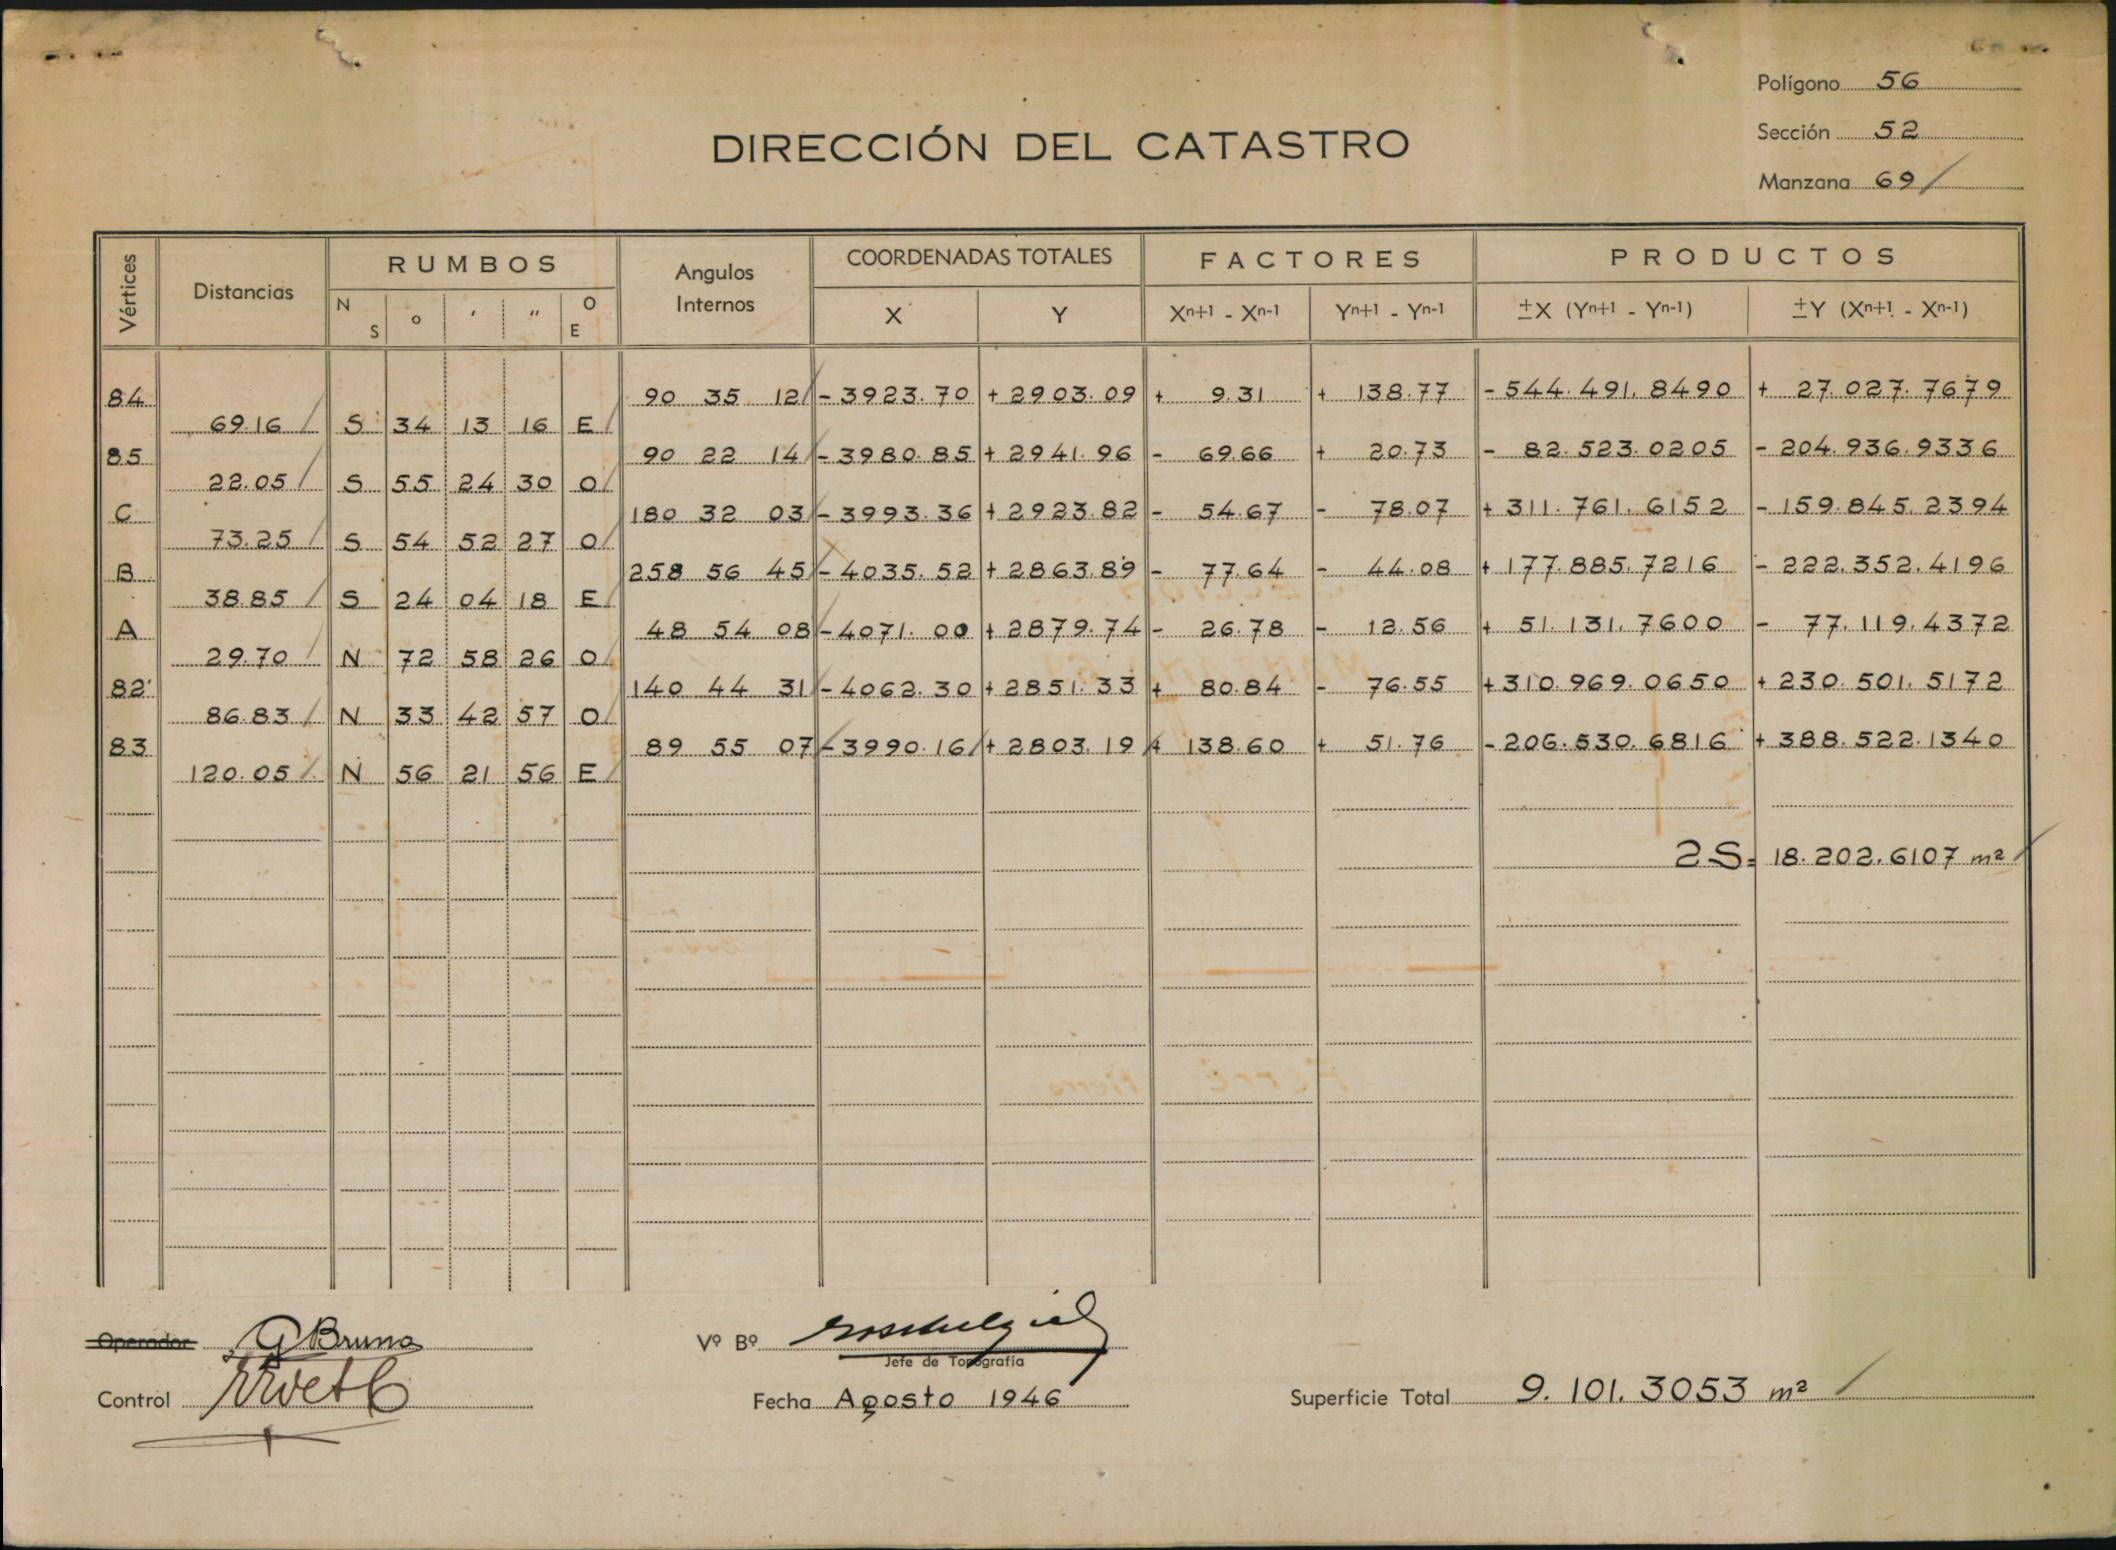 Polígono 56
Sección 52
Manzana 69
DIRECCIÓN DEL CATASTRO
Vértices Distancias RUMBOS Angulos Internos COORDENADAS TOTALES FACTORES PRODUCTOS
N S o ' " O E X Y Xn+1 - Xn-1 Yn+1 - Yn-1 ±X (Yn+1 - Yn-1) ±Y (Xn+1 - Xn-1)
84 90 35 12 - 3923.70 + 2903.09 + 9.31 + 138.77 - 544.491.8490 + 27.027.7679
69.16 S 34 13 16 E
85 90 22 14 - 3980.85 + 2941.96 - 69.66 + 20.73 - 82.523.0205 - 204.936.9336
22.05 S 55 24 30 O
C 180 32 03 - 3993.36 + 2923.82 - 54.67 - 78.07 + 311.761.6152 - 159.845.2394
73.25 S 54 52 27 O
B 258 56 45 - 4035.52 + 2863.89 - 77.64 - 44.08 + 177.885.7216 - 222.352.4196
38.85 S 24 04 18 E
A 48 54 08 - 4071.00 + 2879.74 - 26.78 - 12.56 + 51.131.7600 - 77.119.4372
29.70 N 72 58 26 O
82' 140 44 31 - 4062.30 + 2851.33 + 80.84 - 76.55 + 310.969.0650 + 230.501.5172
86.83 N 33 42 57 O
83 89 55 07 - 3990.16 + 2803.19 + 138.60 + 51.76 - 206.530.6816 + 388.522.1340
120.05 N 56 21 56 E
2S= 18.202.6107 m²
Operador G Bruno Vº Bº
Jefe de Topografía
Control Fecha Agosto 1946 Superficie Total 9.101.3053 m²